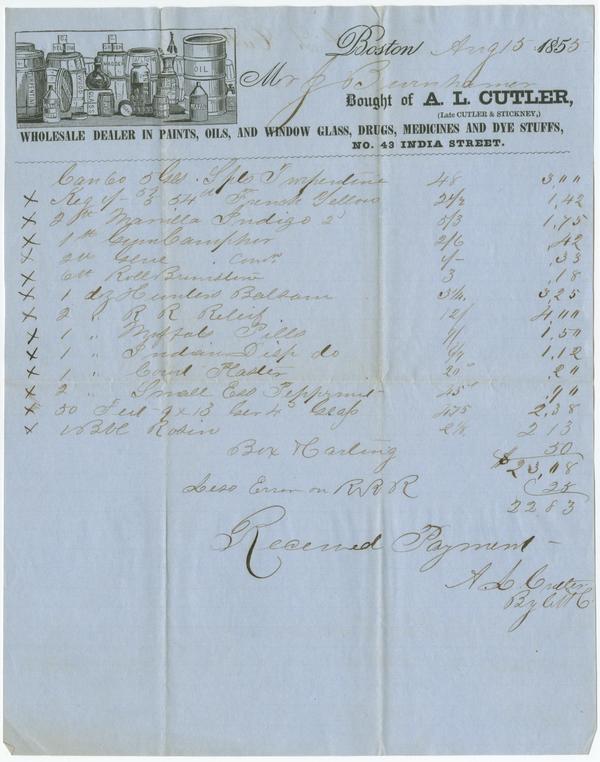 Boston Aug 15 1855
OIL
Mr J Burnhamer
Bought of A. L. CUTLER,
(Late CUTLER & STICKNEY,)
WHOLESALE DEALER IN PAINTS, OILS, AND WINDOW GLASS, DRUGS, MEDICINES AND DYE STUFFS,
NO. 43 INDIA STREET.
Can 60 5 Galls. Spts Turpentine 48 3,""
X Keg 54 lb French Yellow 2 1/2 1,42
X 2 lb Manilla Indigo 5/3 1,75
X 1 lb Gum Camphor 2/6 ,42
X 2 lb Glue 1/- ,33
X 6 lb Roll Brimstone 3 ,18
X 1 dz Hunters Balsam 3 1/4 3,25
X 2 " R R Relief 12/ 4""
X 1 " Pills 9/ 1,50
X 1 " Indian Disp do 1,12
X 1 " Court Plaster 20 2"
X 2 " Small Ess Peppermint 45 ,""
X 50 Feet 9x13 Ger 4th Glass 475 2,38
X 1 Bbl Rosin 2 13
Box & Carting 50
$23,08
Less Error on R R R 25
22 83
Received Payment
A L Cutler
By